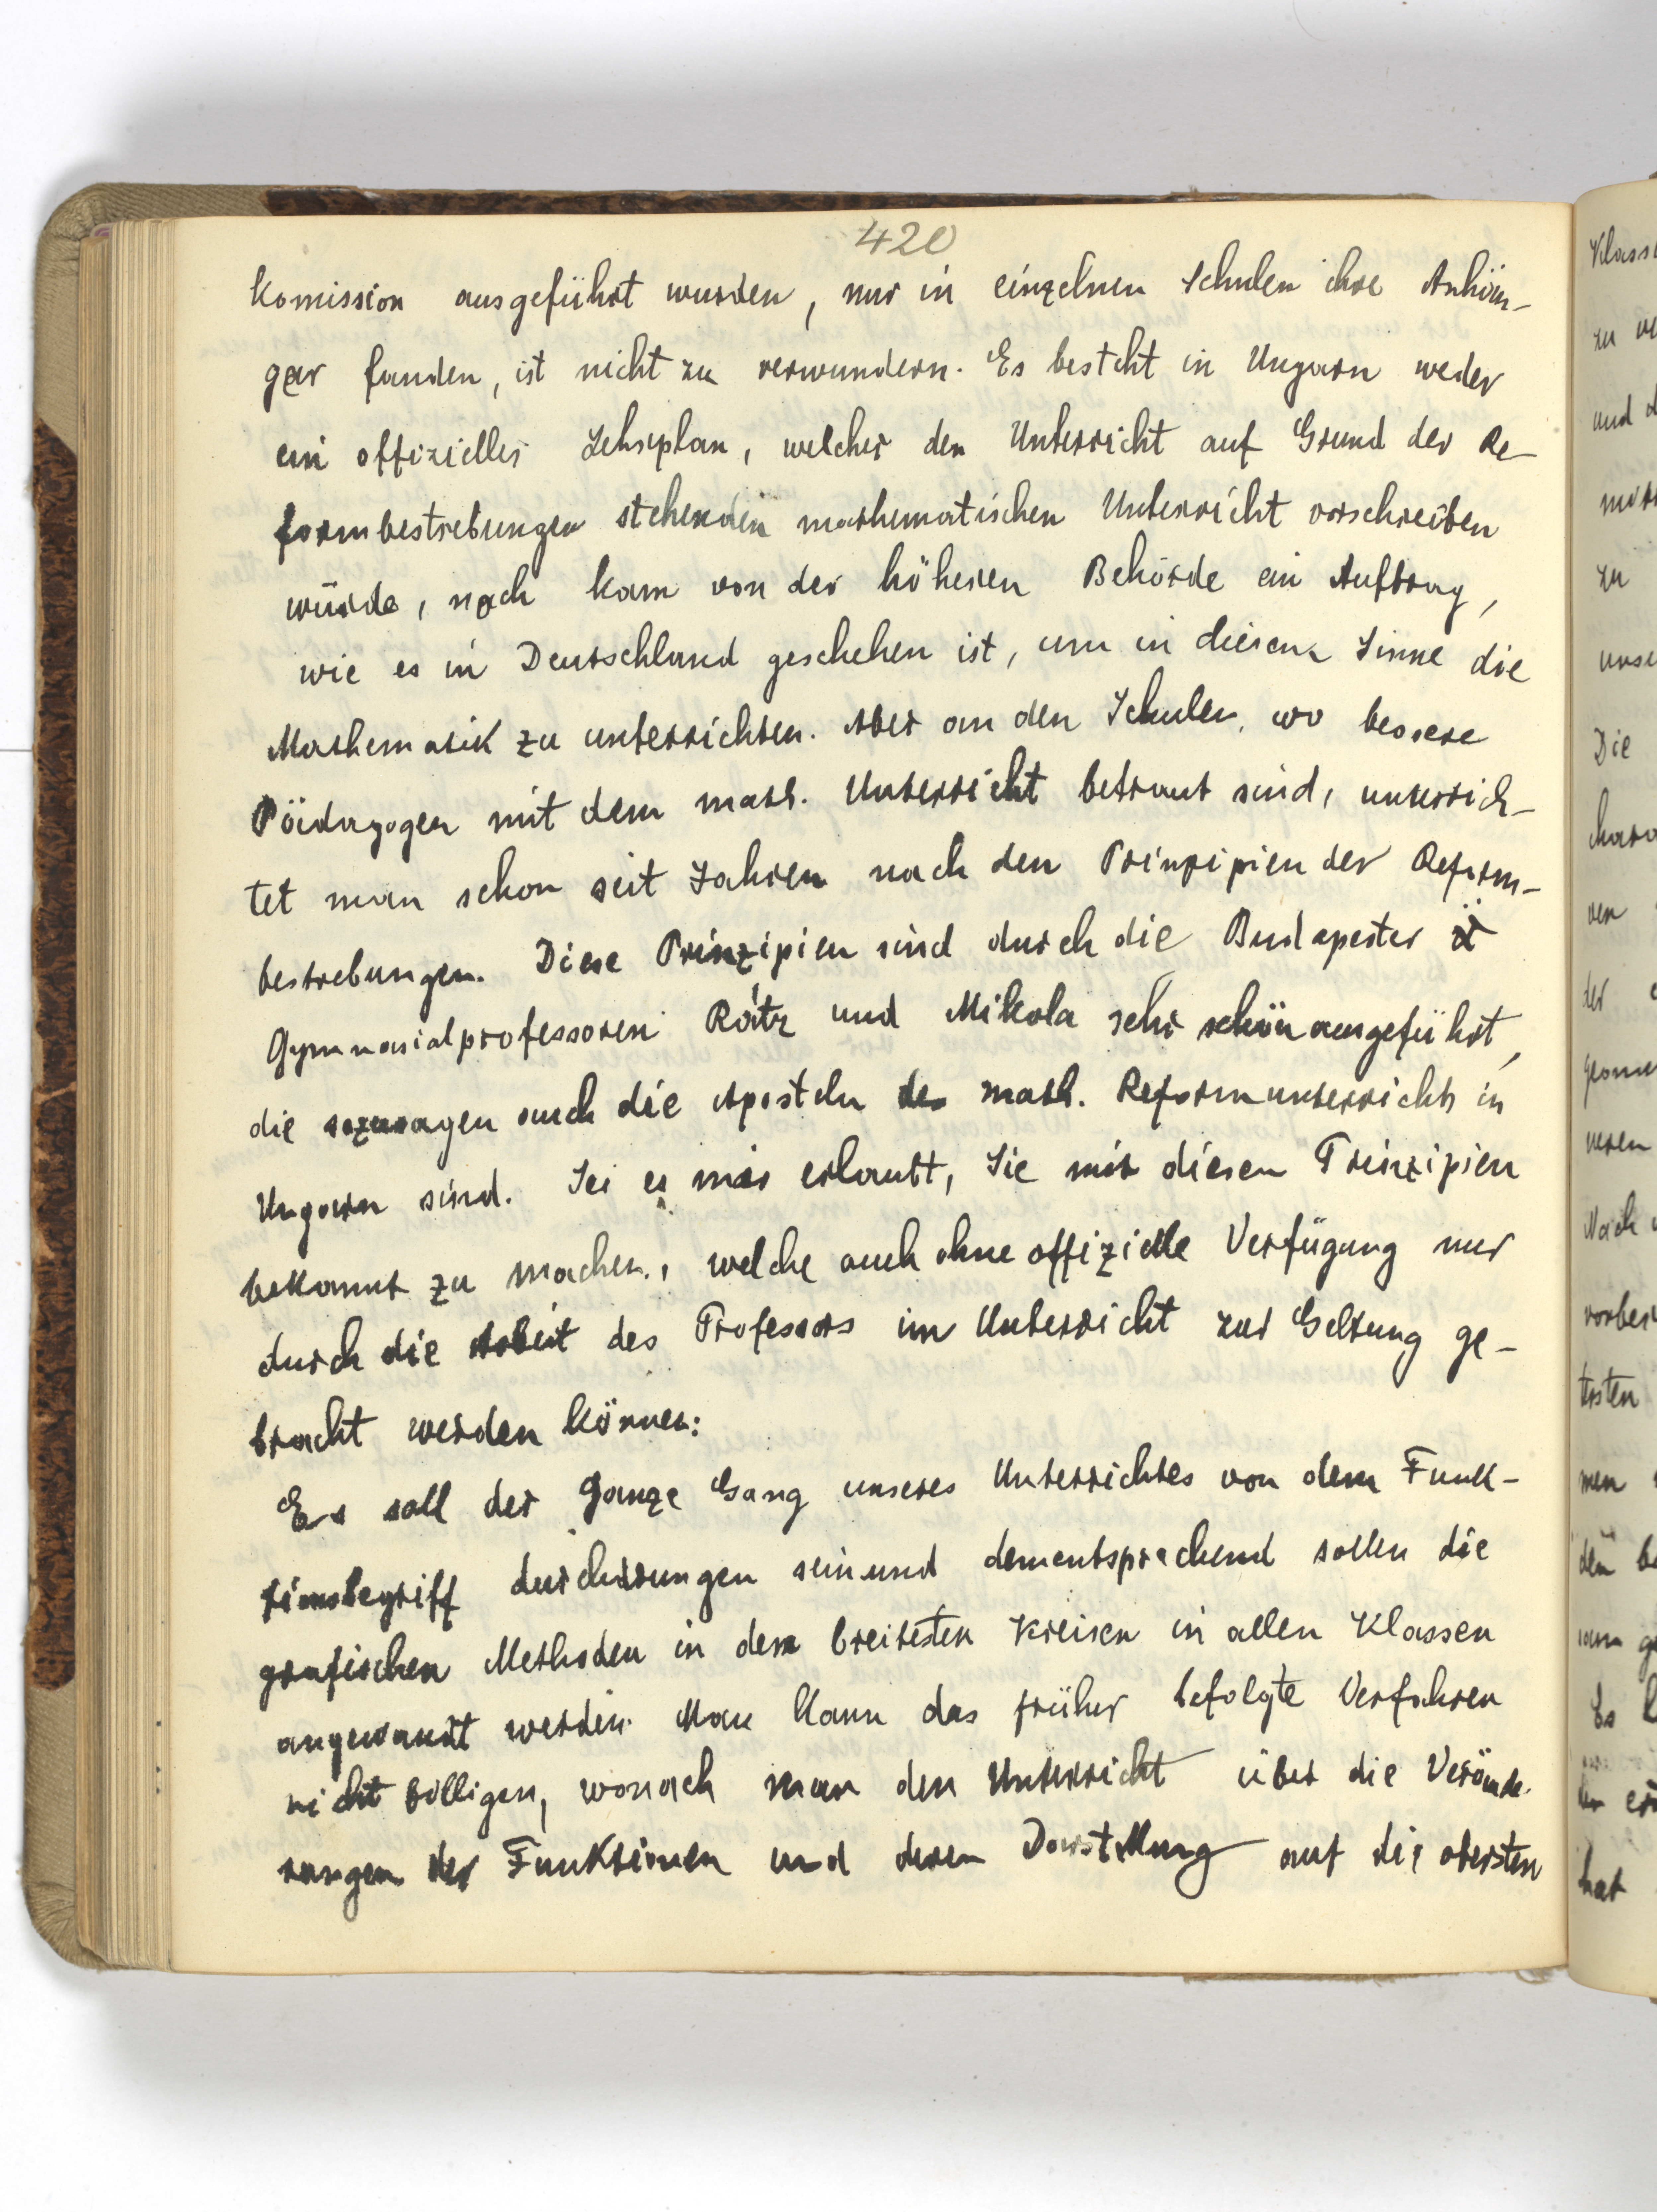 420
Komission ausgeführt wurden, nur in einzelnen Schulen ihre Anhän-
ger fanden, ist nicht zu verwundern. Es besteht in Ungarn weder
ein offizieller Lehrplan, welcher den Unterricht auf Grund der Re-
formbestrebungen stehenden mathematischen Unterricht vorschreiben
würde, noch kam von der höheren Behörde ein Auftrag,
wie es in Deutschland geschehen ist, um in diesem Sinne die
Mathematik zu unterrichten. Aber an den Schulen, wo bessere
Pädagogen mit dem math. Unterricht betraut sind, unterrich-
tet man schon seit Jahren nach den Prinzipien der Reform-
bestrebungen. Diese Prinzipien sind durch die Budapester
Gymnasialprofessoren Rátz und Mikola sehr schön ausgeführt,
die sozusagen auch die Aposteln des math. Reformunterrichts in
Ungarn sind. Sei es mir erlaubt, Sie mit diesen Prinzipien
bekannt zu machen, welche auch ohne offizielle Verfügung nur
durch die Arbeit des Professors im Unterricht zur Geltung ge-
bracht werden können:
Es soll der ganze Gang unseres Unterrichtes von dem Funk-
tionsbegriff durchdrungen sein und dementsprechend sollen die
grafischen Methoden in den breitesten Kreisen in allen Klassen
angewandt werden. Man kann das früher befolgte Verfahren
nicht billigen, wonach man den Unterricht über die Verände-
rungen der Funktionen und deren Darstellung auf die obersten